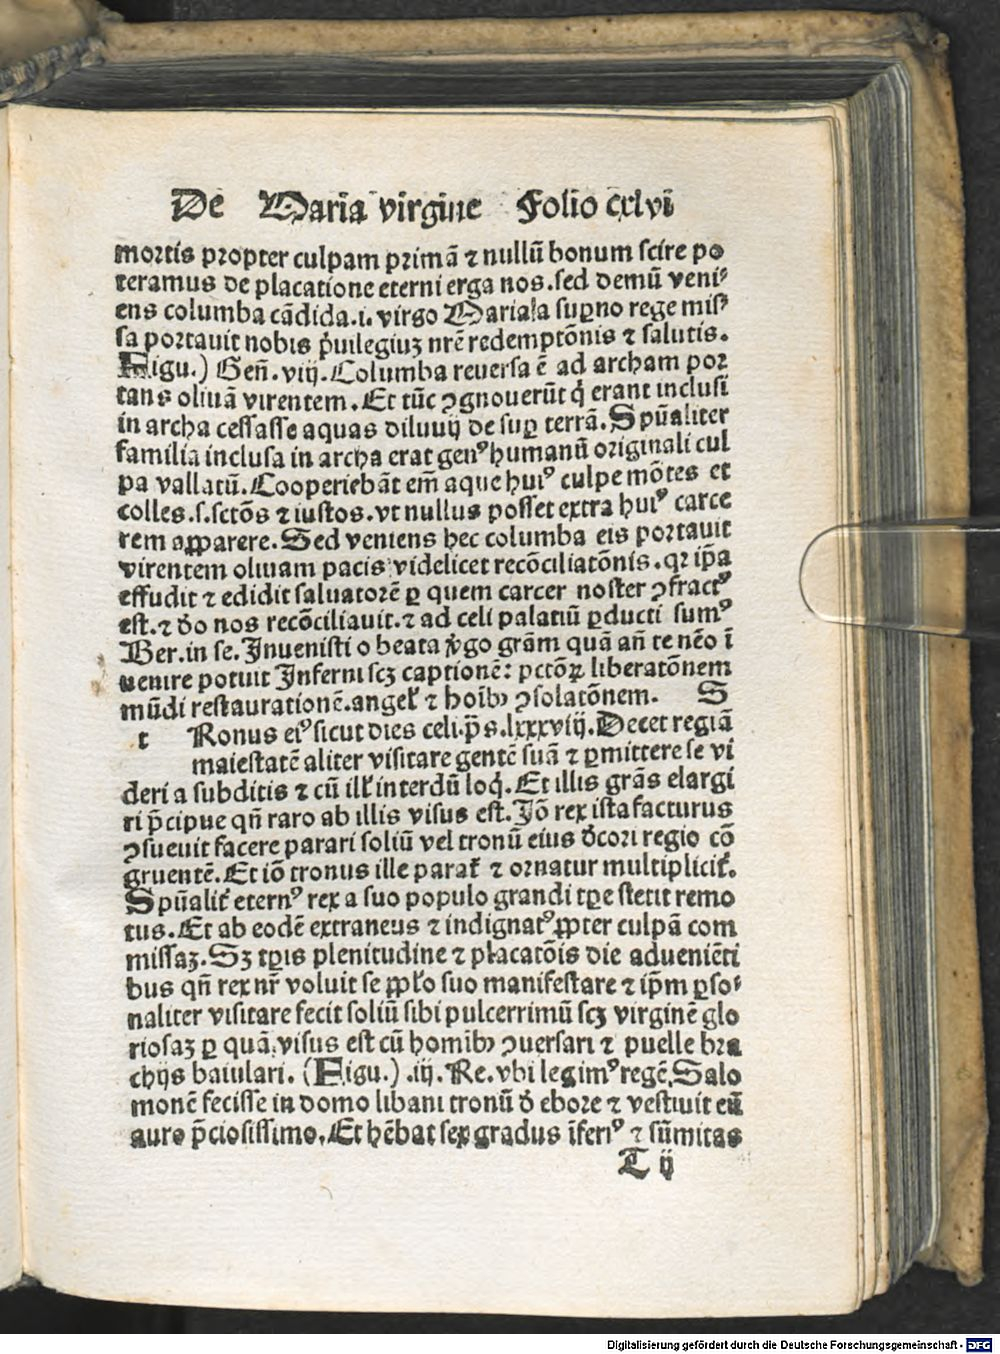 De Maria virgine Folio cxlvi
mortis propter culpam primã ⁊ nullũ bonum scire po
teramus de placatione eterni erga nos.sed demũ veni⸗
ens columba cãdida.i. virgo Maria/a suꝑno rege mis⸗
sa portauit nobis p̍uilegiuꝫ nr̃e redemptõnis ⁊ salutis.
Figu.) Geñ.viij.Columba reuersa ẽ ad archam por
tans oliuã virentem.Et tũc ꝯgnouerũt q̍ erant inclusi
in archa cessasse aquas diluuij de suꝑ terrã.Spũaliter
familia inclusa in archa erat genꝰ humanũ originali cul
pa vallatũ.Cooperiebãt em̃ aque huiꝰ culpe mõtes et
colles.s.sctõs ⁊ iustos.vt nullus posset extra huiꝰ carce
rem aꝑparere.Sed veniens hec columba eis portauit
virentem oliuam pacis videlicet recõciliatõnis.qꝛ ip̃a
effudit ⁊ edidit saluatorẽ ꝑ quem carcer noster ꝯfractꝰ
est.⁊ d̓o nos recõciliauit.⁊ ad celi palatiũ ꝑducti sumꝰ
Ber.in se.Inuenisti o beata v̓go grãm quã añ te nẽo ĩ
uenire potuit Inferni scꝫ captionẽ: pctõꝝ liberatõnem
mũdi restaurationẽ.angeꝉ ⁊ hoĩbꝫ ꝯsolatõnem. S
t Ronus eiꝰ sicut dies celi.p̃s.lxxxviij.Decet regiã
maiestatẽ aliter visitare gentẽ suã ⁊ ꝑmittere se vi
deri a subditis ⁊ cũ iꝉꝉ interdũ loq̍.Et illis grãs elargi
ri p̃cipue qñ raro ab illis visus est.Iõ rex ista facturus
ꝯsueuit facere parari soliũ vel tronũ eius d̓cori regio cõ
gruentẽ.Et iõ tronus ille parat̃ ⁊ ornatur multiplicit̃.
Spũalit̃ eternꝰ rex a suo populo grandi tꝑe stetit remo
tus.Et ab eodẽ extraneus ⁊ indignatꝰ ꝓpter culpã com
missaꝫ.Sꝫ tꝑis plenitudine ⁊ placatõis die adueniẽti
bus qñ rex nr̃ voluit se ꝓpꝉo suo manifestare ⁊ ip̃m ꝑso⸗
naliter visitare fecit soliũ sibi pulcerrimũ scꝫ virginẽ glo
riosaꝫ ꝑ quã visus est cũ homĩbꝫ ꝯuersari ⁊ puelle bra
chijs baiulari.(Figu.).iij.Re.vbi legimꝰ regẽ Salo
monẽ fecisse in domo libani tronũ d̓ ebore ⁊ vestiuit eũ
auro p̃ciosissimo.Et hẽbat sex gradus ĩferiꝰ ⁊ sũmitas
T ij
Digitalisierung gefördert durch die Deutsche Forschungsgemeinschaft - DFG